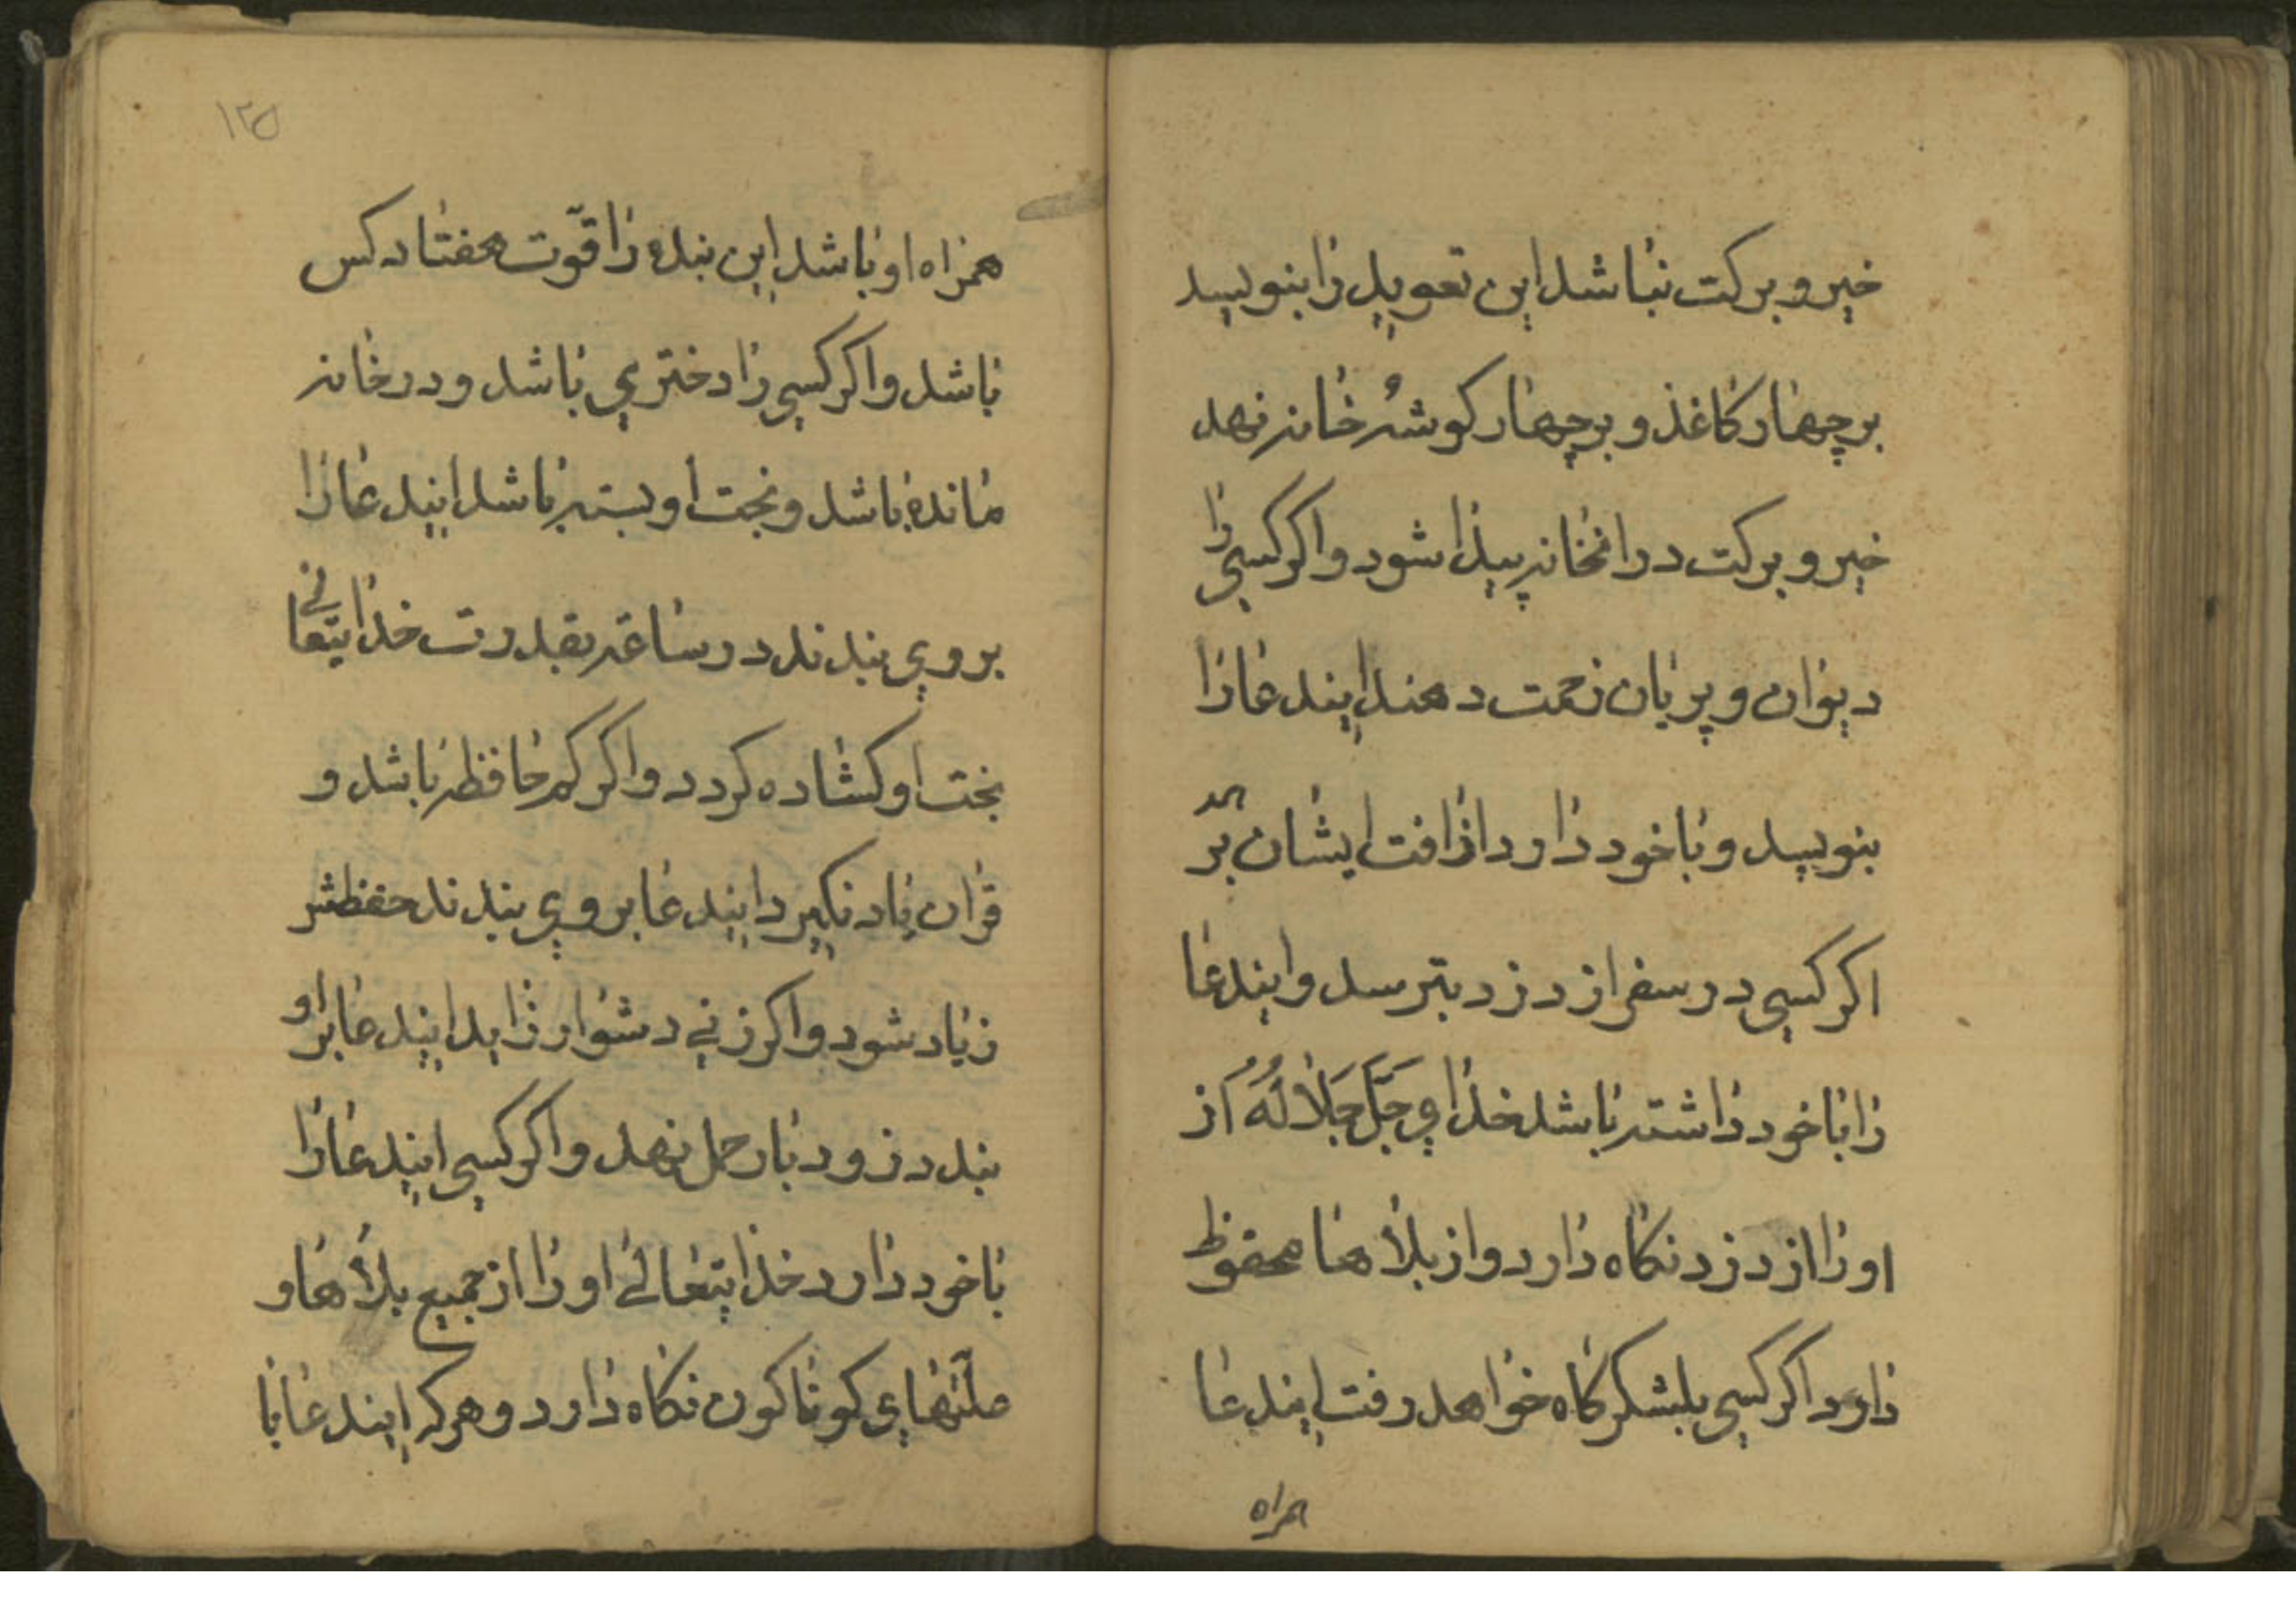 خیر و برکت نباشد این تعویذ را بنویسد
بر چهار کاغذ و بر چهار کوشهٔ خانه نهد
خیر و برکت در انخانه پیدا شود و اکر کسی را
دیوان و پریان زحمت دهند ایندعا را
بنویسد و با خود دارد از افت ایشان برهد
اکر کسی در سفر از دزد بترسد و ایندعا
را با خود داشته باشد خدای جَلَّ جَلَالُهُ از
او را از دزد نکاه دارد و از بلاها محفوظ
دارد اکر کسی بلشکرکاه خواهد رفت ایندعا
همراه
۱۲۵
همراه او باشد این بنده را قوّت هفتاد کس
باشد و اکر کسی را دختری باشد و در خانه
مانده باشد و بخت او بسته باشد ایندعا را
بر وی بندند در ساعه بقدرت خدایتعالی
بخت او کشاده کردد و اکر کم حافظه باشد و
قران یاد نکیرد ایندعا بر وی بندند حفظش
زیاد شود و اکر زنی دشوار زاید ایندعا بر او
بندد زود بار حمل نهد و اکر کسی ایندعا را
با خود دارد خدایتعالی او را از جمیع بلاها و
ملّتهای کوناکون نکاه دارد و هر که ایندعا با